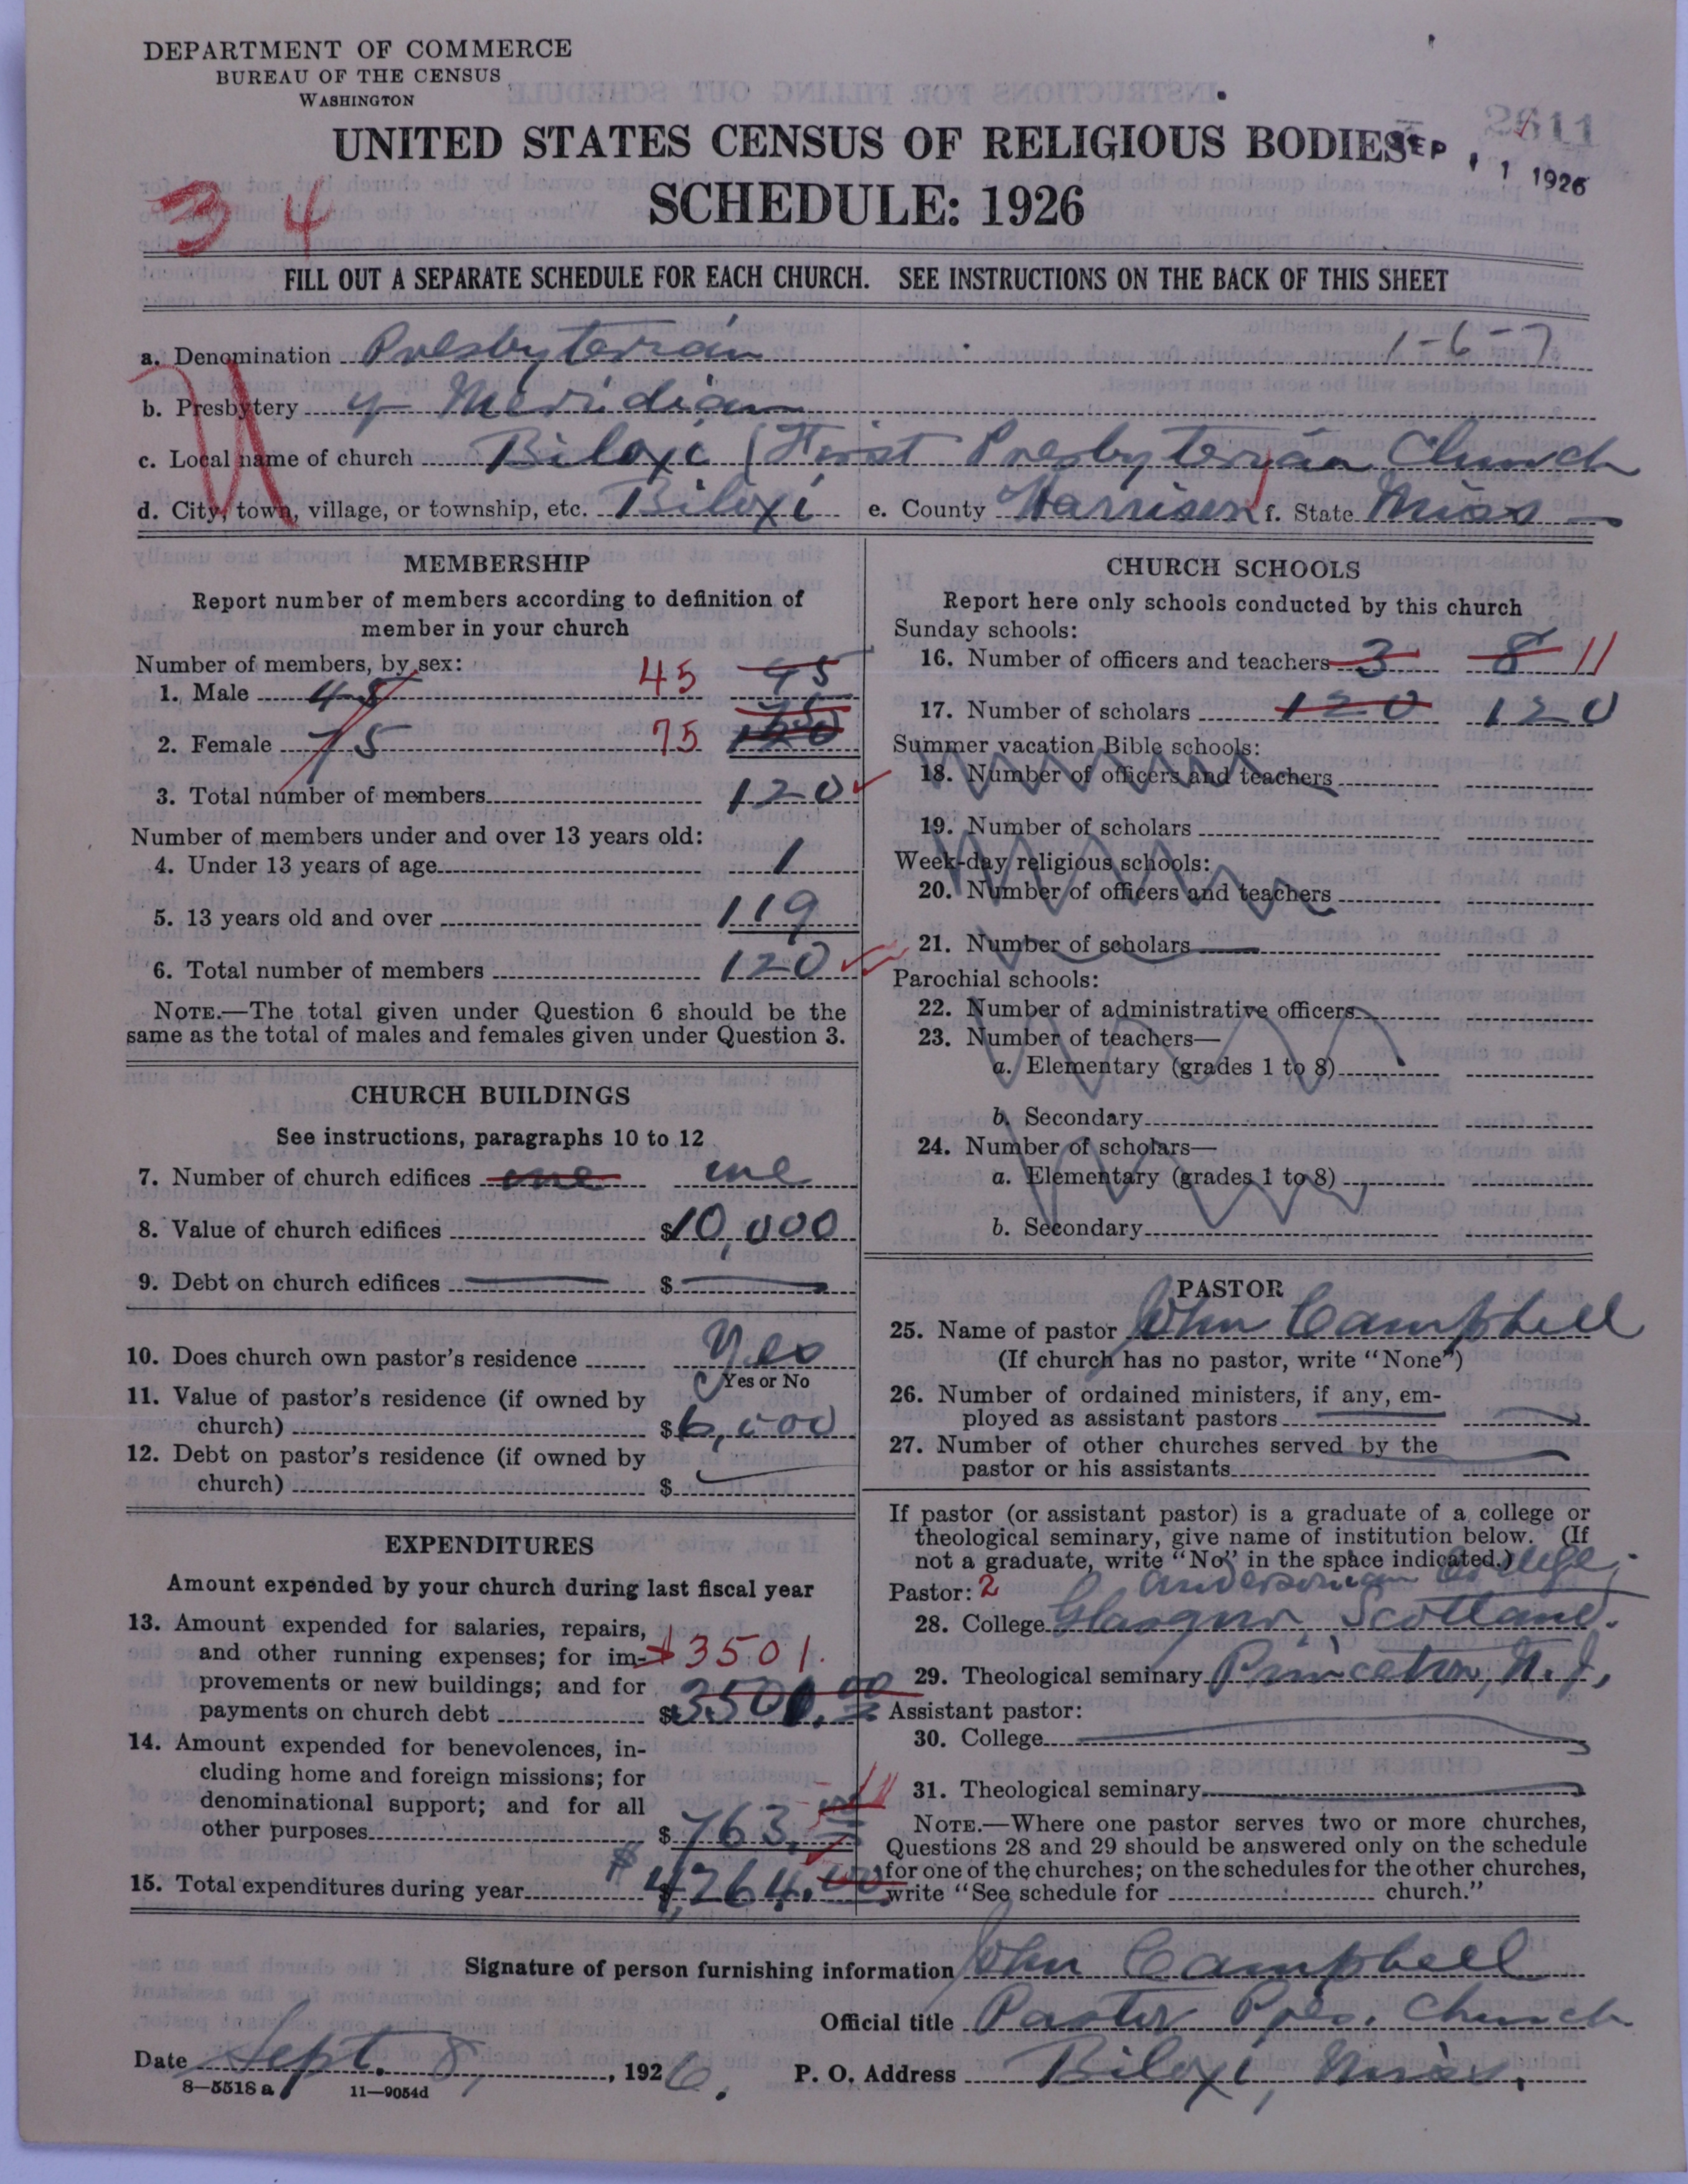 DEPARTMENT OF COMMERCE
BUREAU OF THE CENSUS
WASHINGTON
2811
UNITED STATES CENSUS OF RELIGIOUS BODIES
SEP 11 1926
SCHEDULE: 1926
34
FILL OUT A SEPARATE SCHEDULE FOR EACH CHURCH. SEE INSTRUCTIONS ON THE BACK OF THIS SHEET
a. Denomination Presbyterian 1-6-7
b. Presbytery of Meridian
c. Local name of church Biloxi (First Presbyterian Church
d. City, town, village, or township, etc. Biloxi e. County Harrison f. State Miss
MEMBERSHIP
Report number of members according to definition of
member in your church
Number of members, by sex:
1. Male 45 45 45
2. Female 75 75
3. Total number of members 120
Number of members under and over 13 years old:
4. Under 13 years of age 1
5. 13 years old and over 119
6. Total number of members 120
NOTE.—The total given under Question 6 should be the
same as the total of males and females given under Question 3.
CHURCH BUILDINGS
See instructions, paragraphs 10 to 12
7. Number of church edifices one one
8. Value of church edifices $10,000
9. Debt on church edifices $
10. Does church own pastor's residence Yes
Yes or No
11. Value of pastor's residence (if owned by
church) $6,000
12. Debt on pastor's residence (if owned by
church) $
EXPENDITURES
Amount expended by your church during last fiscal year
13. Amount expended for salaries, repairs,
and other running expenses; for im- 3501.
provements or new buildings; and for
payments on church debt $3501.00
14. Amount expended for benevolences, in-
cluding home and foreign missions; for
denominational support; and for all
other purposes $763.00
15. Total expenditures during year $4,264.00
CHURCH SCHOOLS
Report here only schools conducted by this church
Sunday schools:
16. Number of officers and teachers 3 8 11
17. Number of scholars 120 120
Summer vacation Bible schools:
18. Number of officers and teachers
19. Number of scholars
Week-day religious schools:
20. Number of officers and teachers
21. Number of scholars
Parochial schools:
22. Number of administrative officers
23. Number of teachers—
a. Elementary (grades 1 to 8)
b. Secondary
24. Number of scholars—
a. Elementary (grades 1 to 8)
b. Secondary
PASTOR
25. Name of pastor John Campbell
(If church has no pastor, write "None")
26. Number of ordained ministers, if any, em-
ployed as assistant pastors
27. Number of other churches served by the
pastor or his assistants
If pastor (or assistant pastor) is a graduate of a college or
theological seminary, give name of institution below. (If
not a graduate, write "No" in the space indicated.)
Pastor: 2 Andersonian College,
28. College Glasgow, Scotland.
29. Theological seminary Princeton, N.J.,
Assistant pastor:
30. College
31. Theological seminary
NOTE.—Where one pastor serves two or more churches,
Questions 28 and 29 should be answered only on the schedule
for one of the churches; on the schedules for the other churches,
write "See schedule for church."
Signature of person furnishing information John Campbell
Official title Pastor Pres. Church
Date Sept. 8, 1926. P. O. Address Biloxi, Miss.
8—5518 a 11—9054d